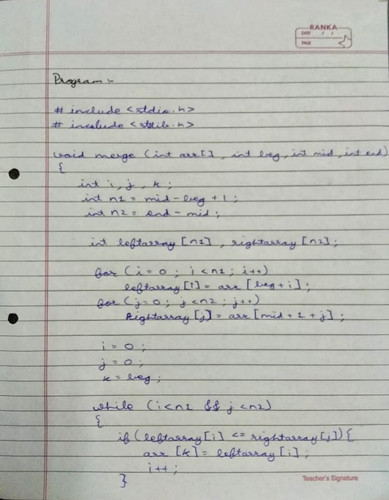 RANKA
DATE / /
PAGE
Program :-
# include <stdio.h>
# include <stdlib.h>
void merge (int arr[], int beg, int mid, int end)
{
int i, j, k ;
int n1 = mid - beg + 1 ;
int n2 = end - mid ;
int leftarray [n1], rightarray [n2] ;
for (i = 0 ; i < n1 ; i++)
leftarray [i] = arr [beg + i] ;
for (j = 0 ; j < n2 ; j++)
Rightarray [j] = arr [mid + 1 + j] ;
i = 0 ;
j = 0 ;
k = beg ;
while (i < n1 && j < n2)
{
if (leftarray [i] <= rightarray [j]) {
arr [k] = leftarray [i] ;
i++ ;
}
Teacher's Signature